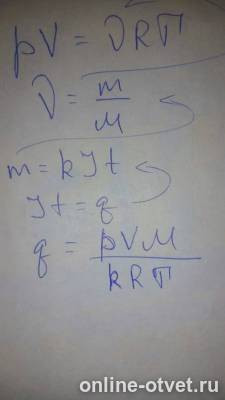 pV = νRT
ν = m/M
m = kIt
It = q
q = pVM/kRT
online-otvet.ru